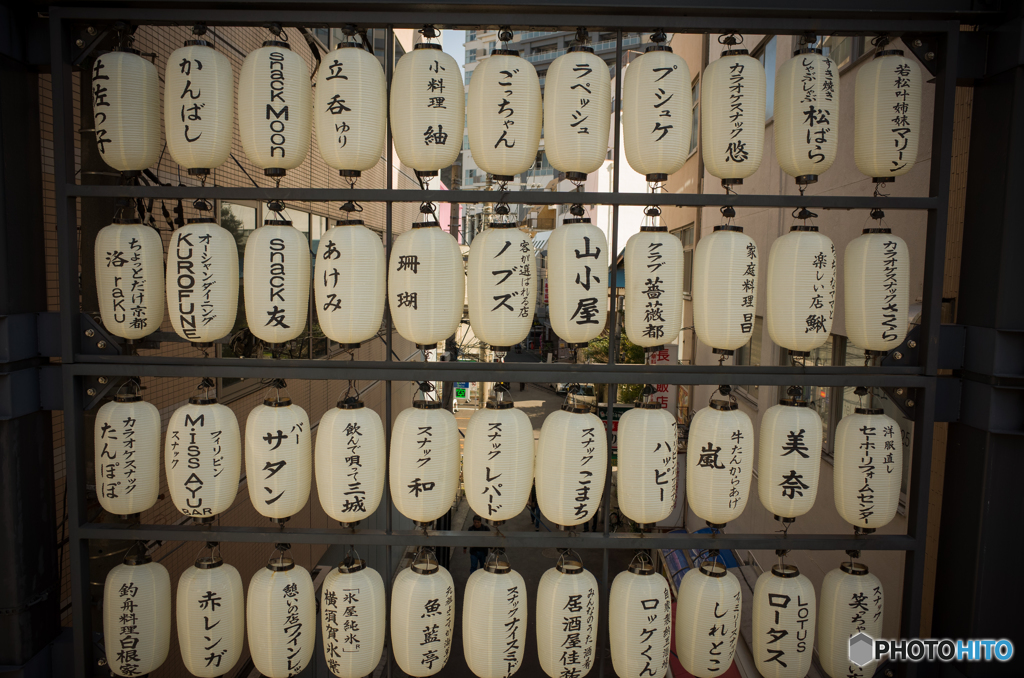 土佐っ子
かんばし
snack Moon
立呑 ゆり
小料理 紬
ごっちゃん
ラペッシュ
プシュケ
カラオケスナック 悠
すき焼き しゃぶしゃぶ 松ばら
若松叶姉妹 マリーン
ちょっとだけ京都
洛 raku
オーシャンダイニング
KUROFUNE
snack 友
あけみ
珊瑚
客が選ばれる店
ノブズ
山小屋
クラブ 薔薇都
家庭料理 昌
楽しい店 鰍
カラオケスナック さくら
カラオケスナック
たんぽぽ
フィリピン
MISS AYU BAR
スナック
バー
サタン
飲んで唄って 三城
スナック 和
スナック レパード
スナック こまち
ハッピー
牛たんからあげ
嵐
美奈
洋服直し
セーホーリフォームセンター
釣舟料理 白根家
赤レンガ
憩いの店 ワインレ
「氷屋純氷」
横須賀氷業
魚藍亭
スナック ナイスミー
みんなのうた
居酒屋 佳
ロッケくん
しれとこ
LOTUS
ロータス
スナック
笑ぢゃ
PHOTOHITO